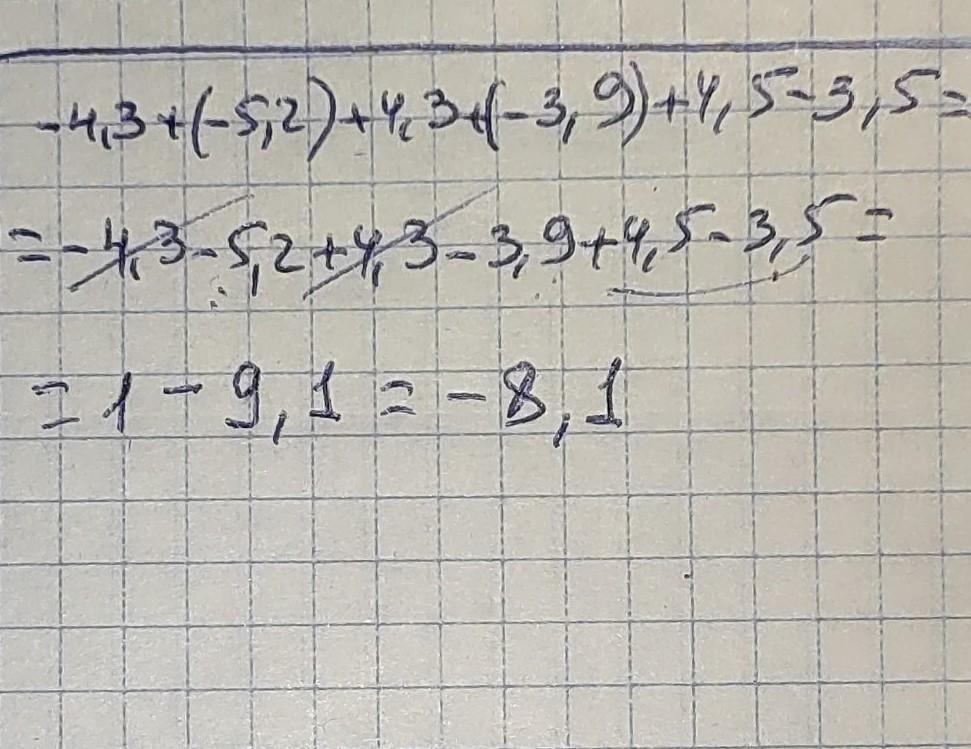 -4,3+(-5,2)+4,3+(-3,9)+4,5-3,5=
=-4,3-5,2+4,3-3,9+4,5-3,5=
=1-9,1=-8,1